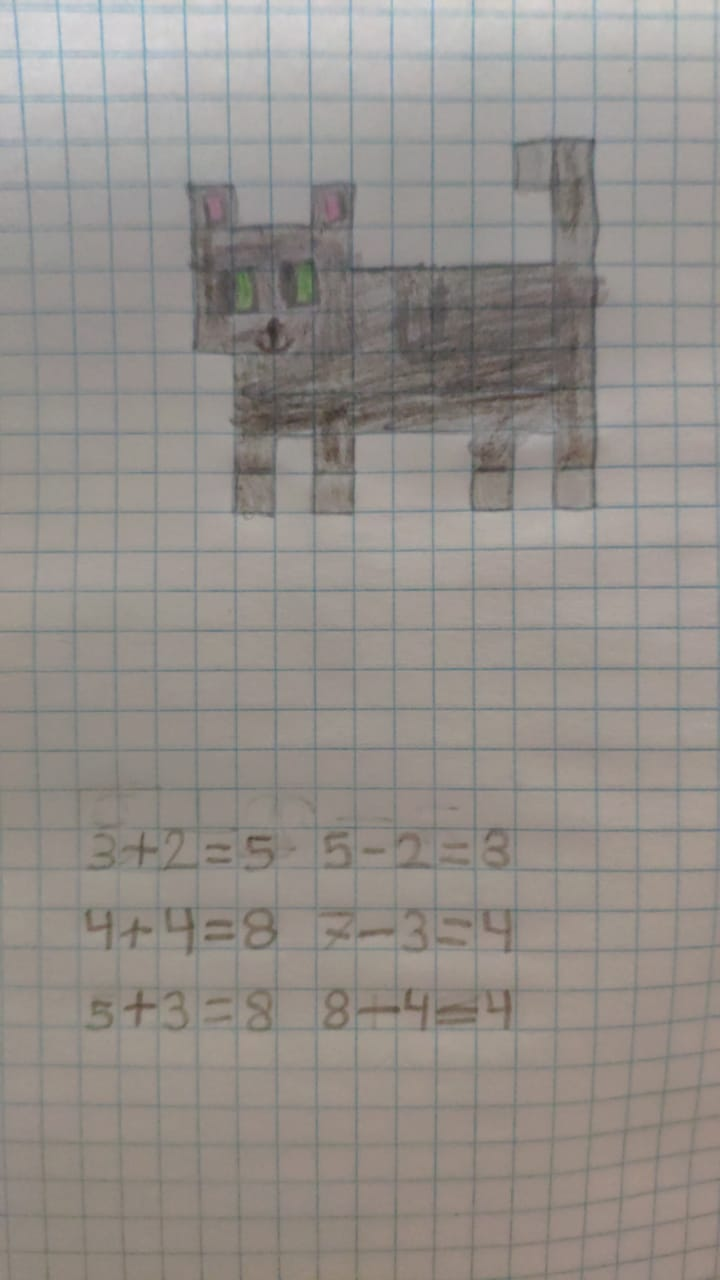 3+2=5 5-2=3
4+4=8 7-3=4
5+3=8 8-4=4